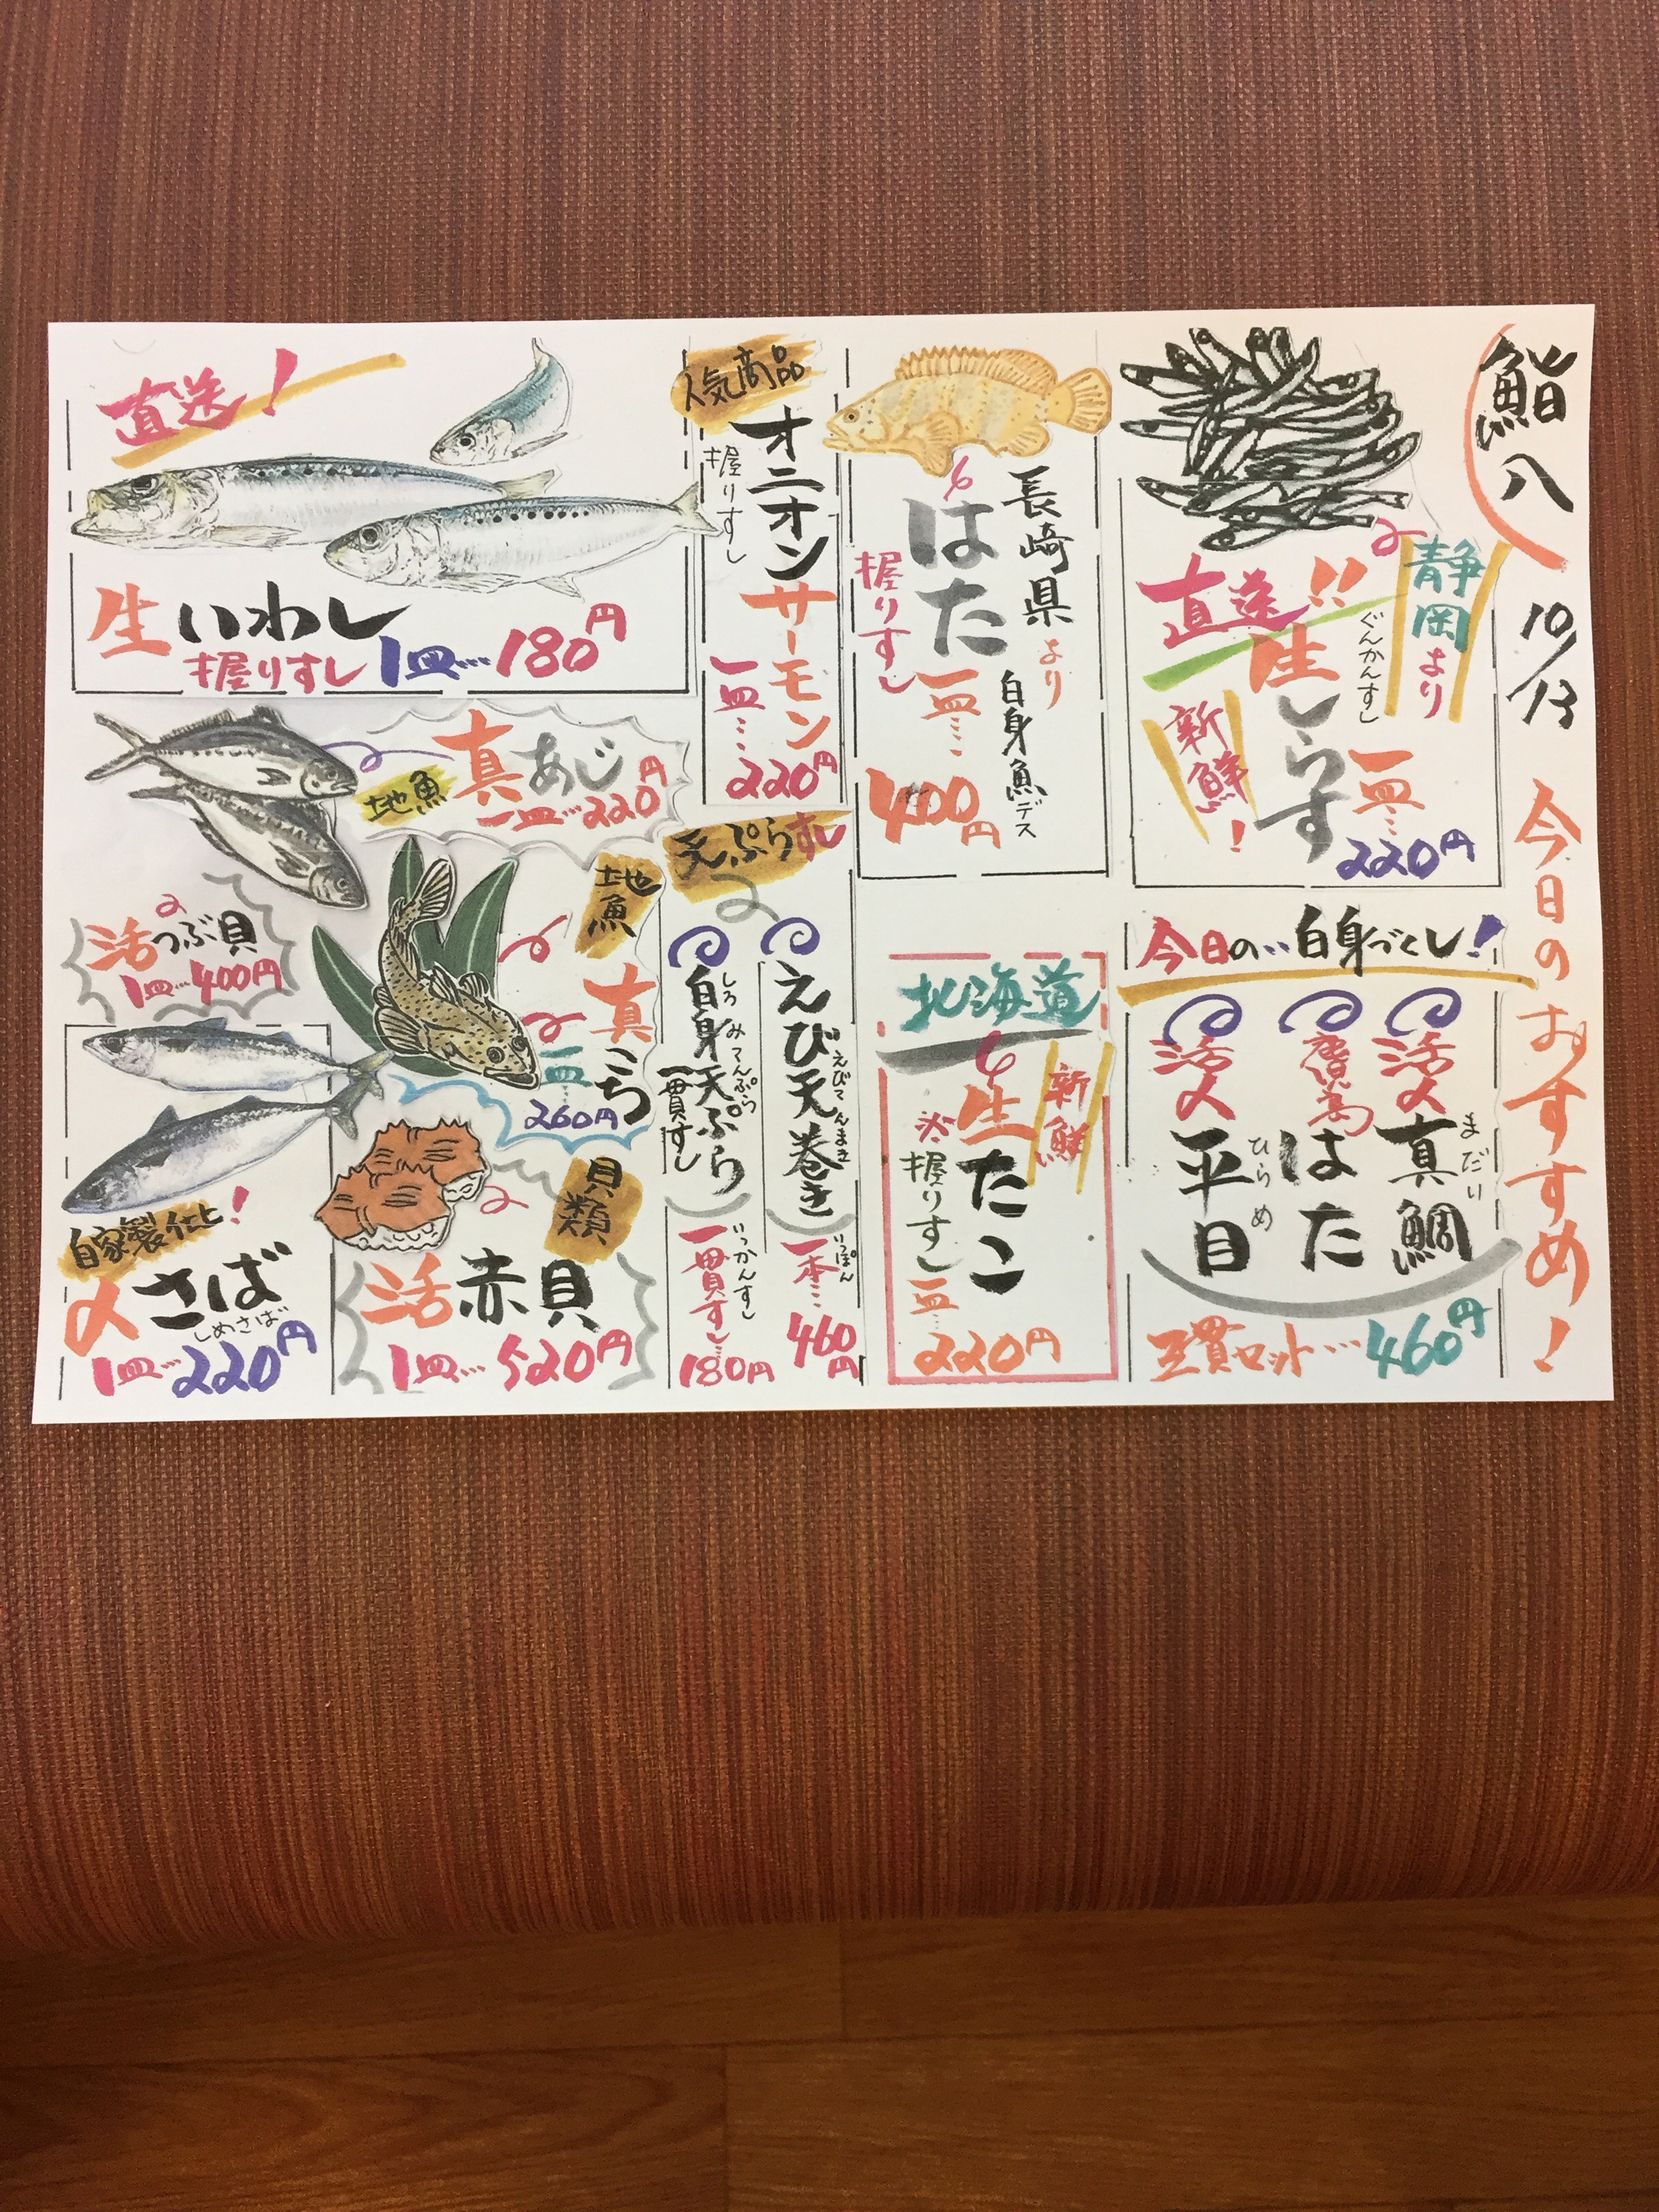 鮨八
10/13
今日のおすすめ!
静岡より
直送!!
生しらす
ぐんかんすし
新鮮!
一皿…
220円
今日の…白身づくし!
活〆
真鯛
まだい
はた
活〆
平目
ひらめ
三貫セット…460円
長崎県より
はた
握りすし
白身魚デス
一皿…
400円
北海道
新鮮
生たこ
握りすし
一皿…
220円
人気商品
オニオンサーモン
握りすし
一皿…
220円
天ぷらすし
えび天巻き
えびてんまき
一本…
いっぽん
460円
白身天ぷら
しろみてんぷら
一貫すし
一貫すし…
いっかんすし
180円
直送!
生いわし
握りすし 1皿…180円
地魚
真あじ
一皿…220円
地魚
真こち
一皿…
260円
活つぶ貝
1皿…400円
貝類
活赤貝
1皿…520円
自家製仕込!
〆さば
しめさば
1皿…220円